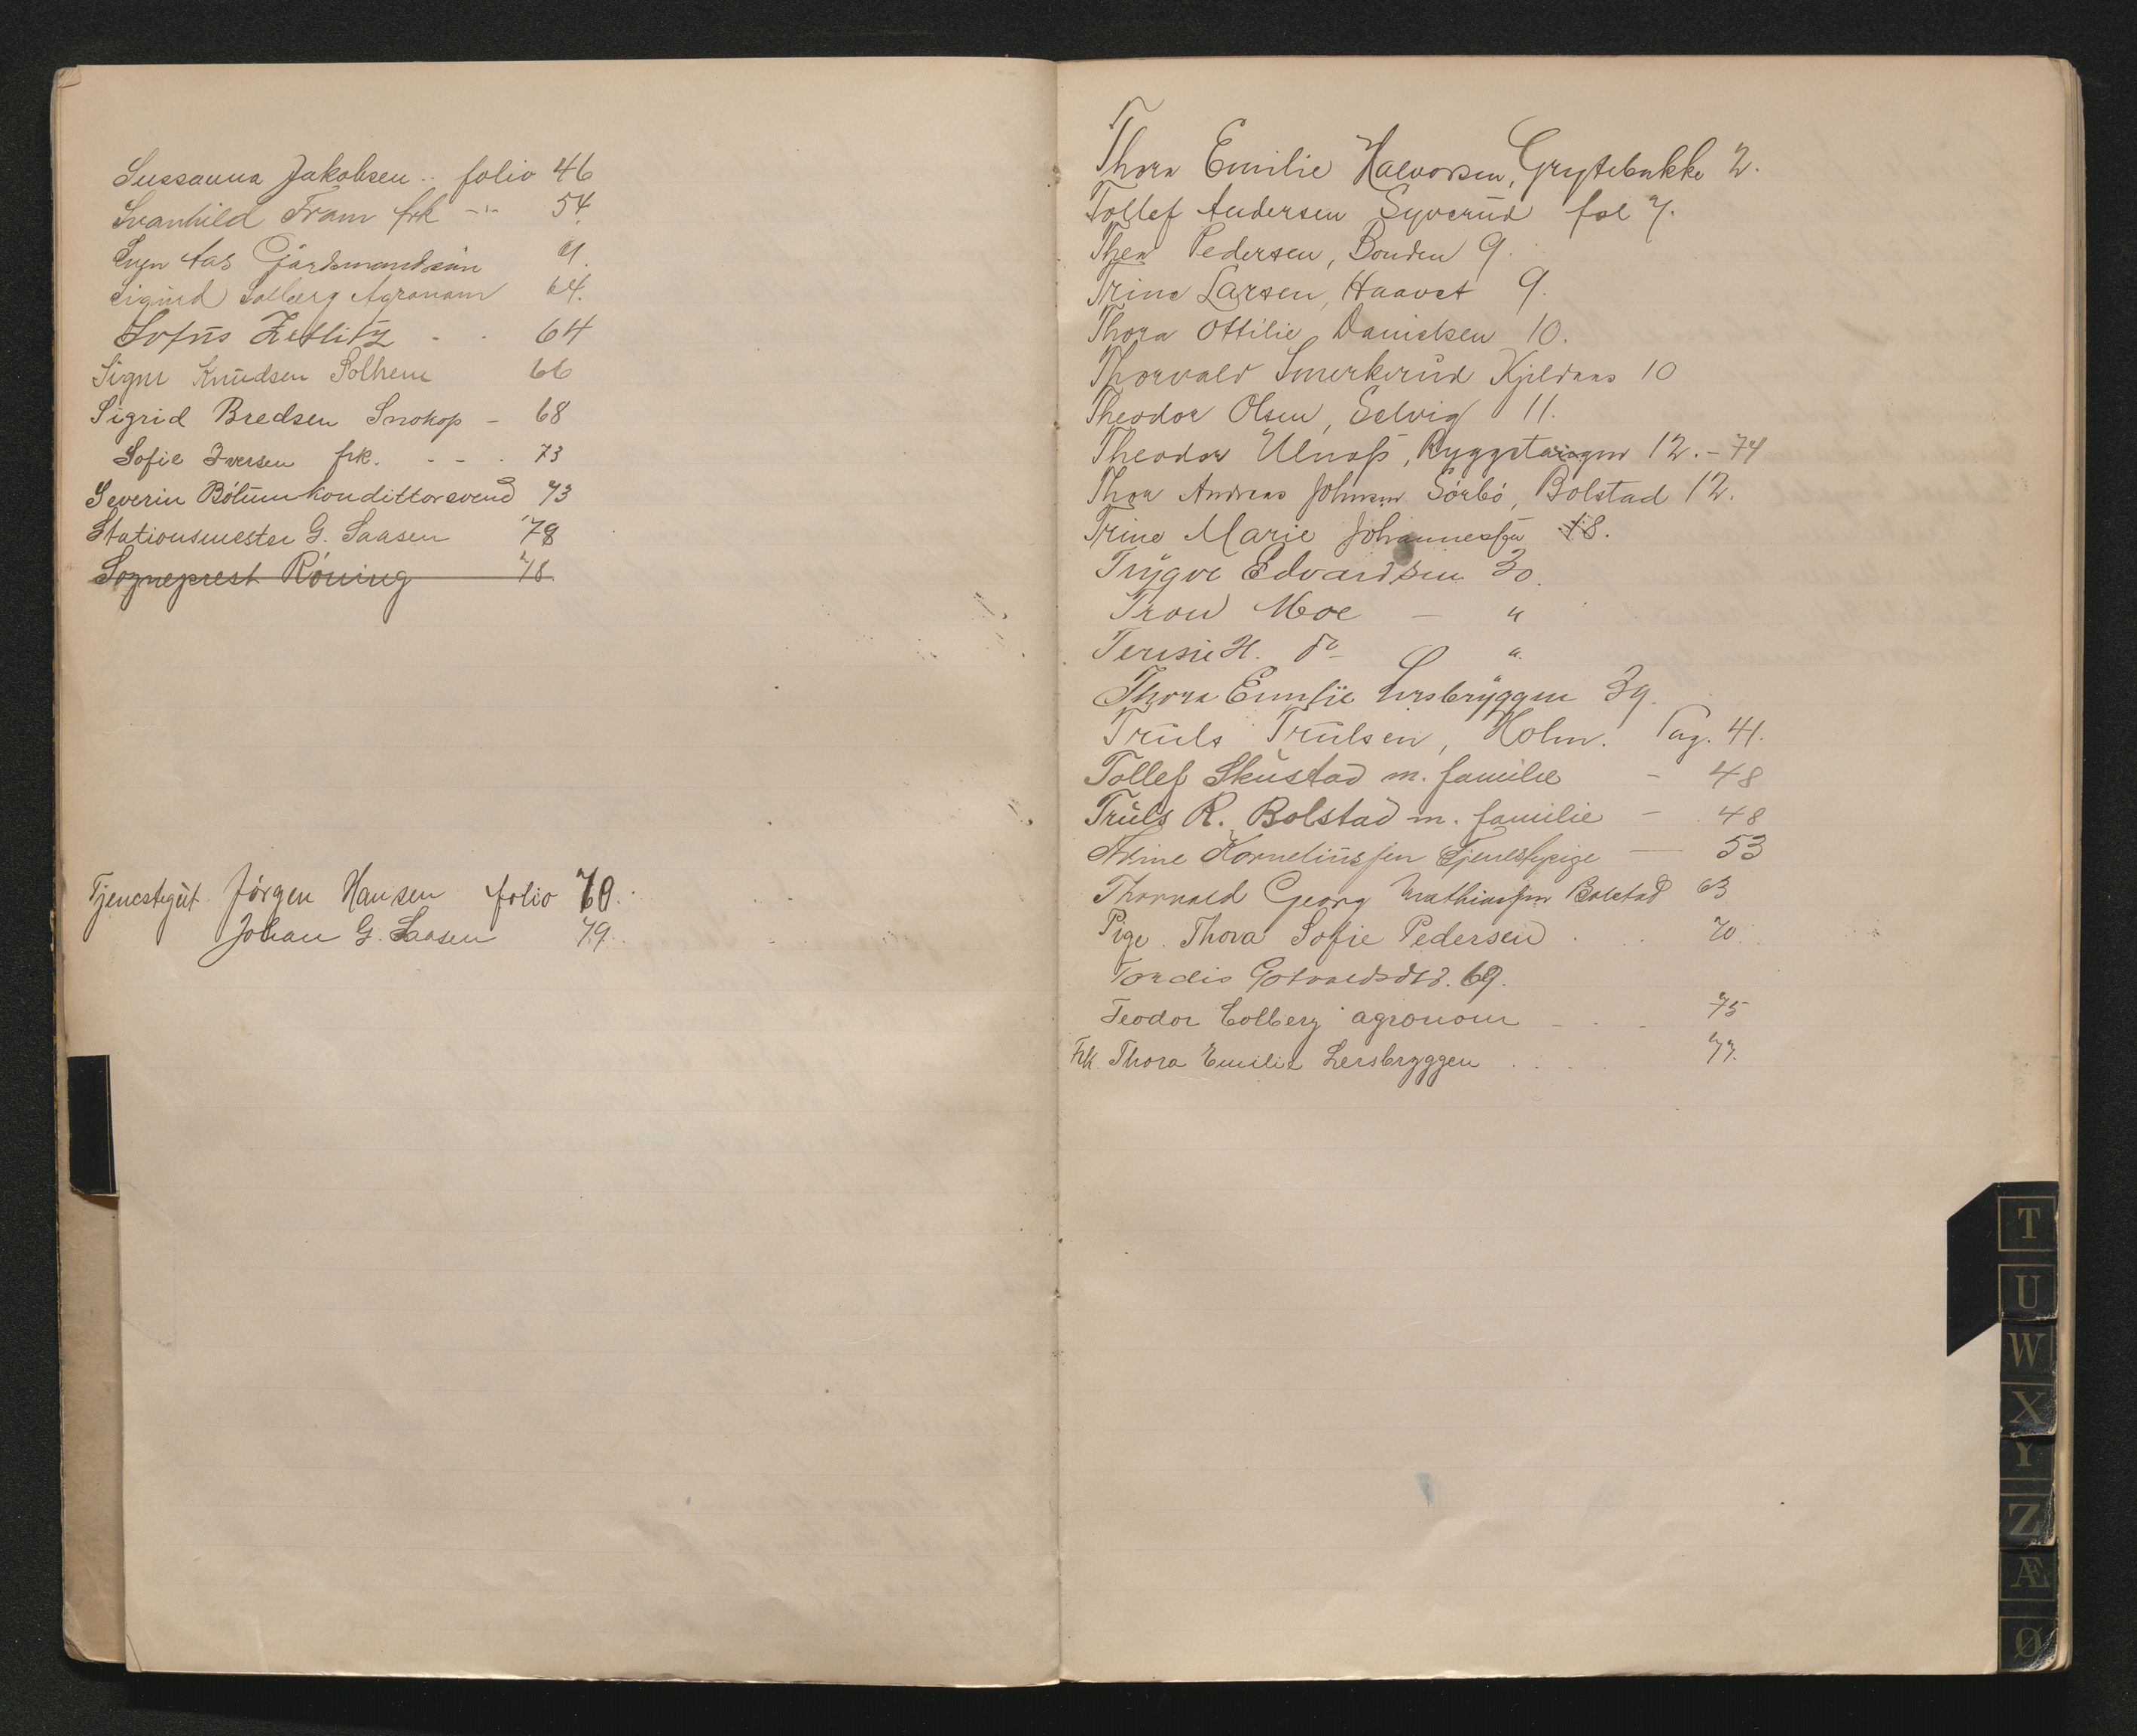 Sussanna Jakobsen .. folio 46
Svanhild Fram frk -"- 54
Sven Aas Gårdsmandssøn 61.
Sigurd Solberg Agronom 64.
Sofus Zetlitz - - 64
Signe Knudsen Solhem 66
Sigrid Bredsen Snokop - 68
Sofie Iversen frk. - - . 73
Severin Bölum kondittorsvend 73
Stationsmester G. Saasen 78
Sogneprest Röning 78.
Tjenestegut Jörgen Hansen folio 70.
Johan G. Saasen 79.
T
Thora Emilie Halvorsen, Grytebakke 2.
Tollef Andersen Syverud fol 7.
Thea Pedersen, Bonden 9.
Trine Larsen, Haavet 9.
Thora Ottilie Danielsen 10.
Thorvald Smerkerud Kjeldaas 10
Theodor Olsen, Selvig 11.
Theodor Ulnass, Ryggetangen 12. - 74
Thor Andreas Johnsen Sörbö, Bolstad 12.
Trine Marie Johannessen 18.
Trygve Edvardsen 30.
Tron Moe - "
Teresie H. do "
Thora Emilie Lersbryggen 39.
Truls Trulsen, Holm. Pag. 41.
Tollef Skustad m. familie - 48
Truls R. Bolstad m. familie - 48
Trine Korneliussen Tjenestepige - 53
Thorvald Georg Mathiassen Bolstad 63
Pige. Thora Sofie Pedersen . . 70
Tordis 69.
Teodor Solberg agronom - . - 75
Frk. Thora Emilie Lersbryggen . . . . 77.
T
U
W
X
Y
Z
Æ
Ø